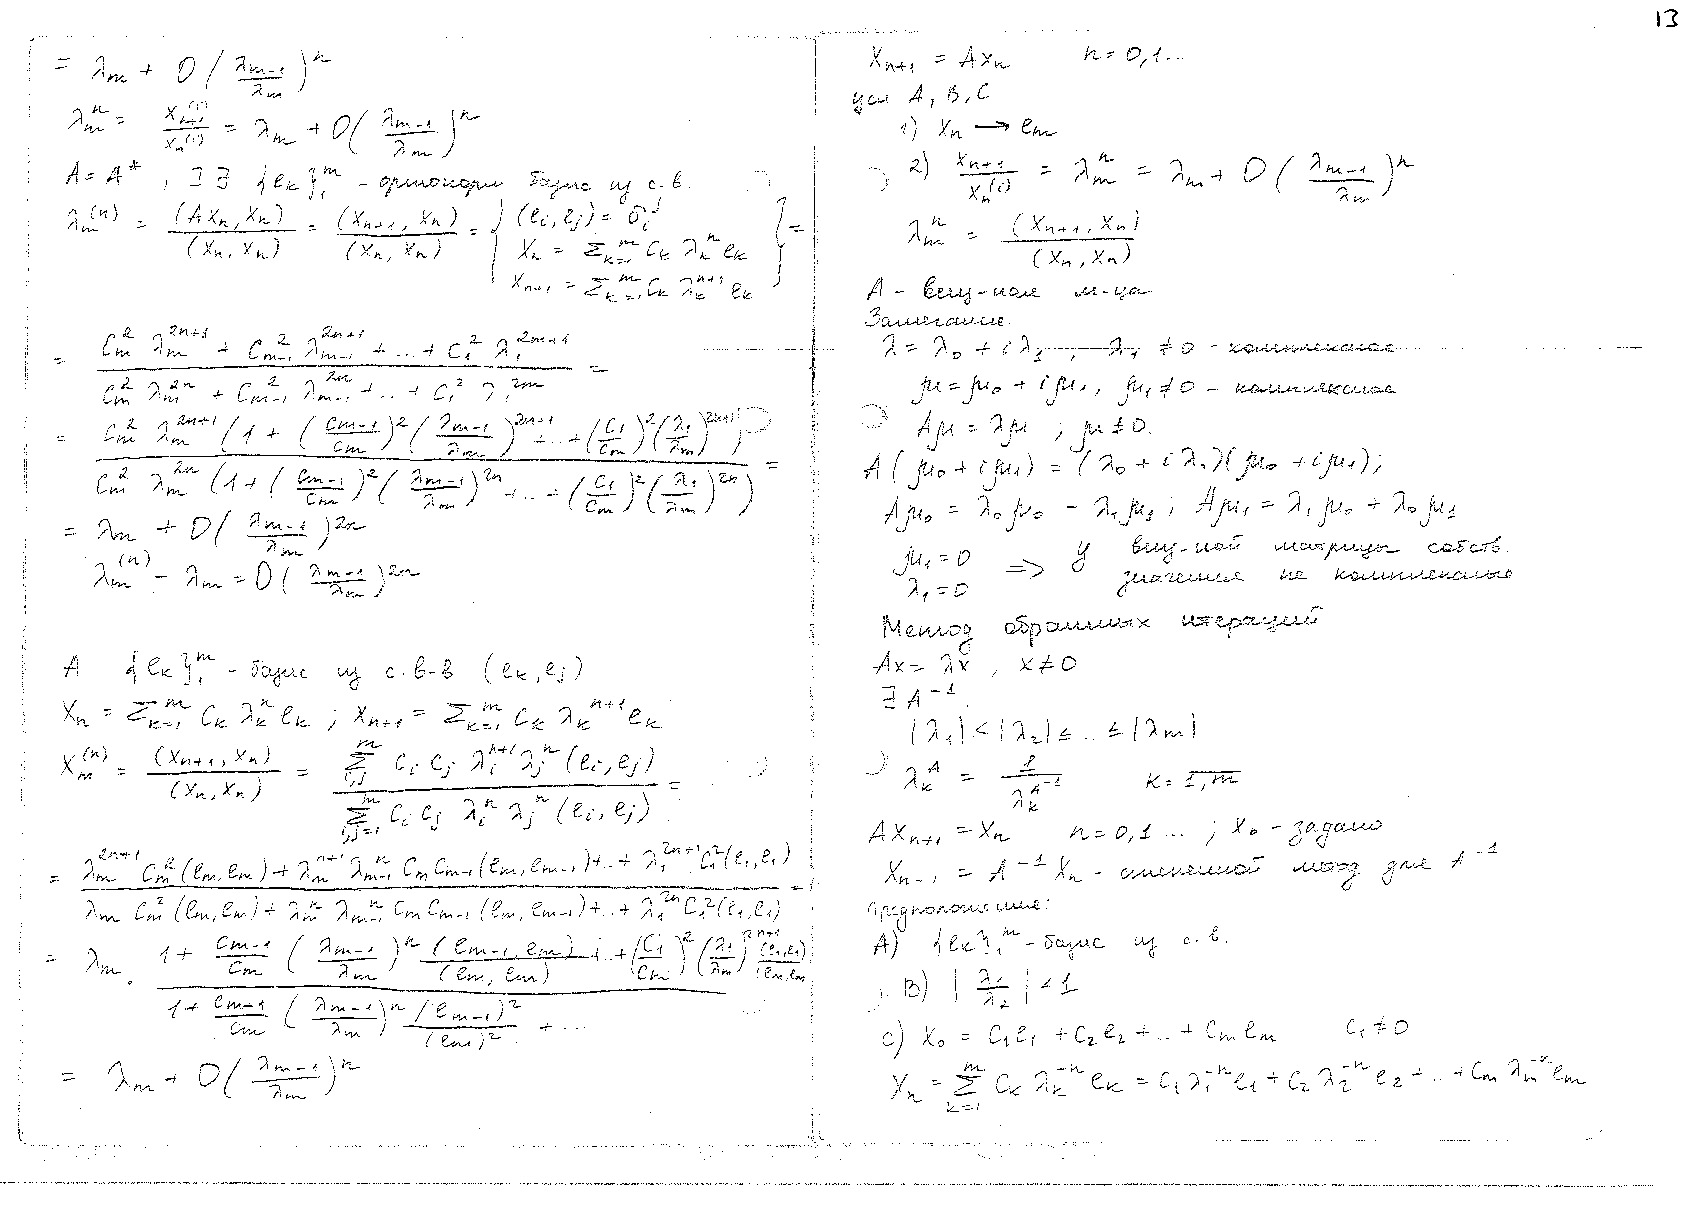 13
= λₘ + O(λₘ₋₁/λₘ)ⁿ
λₘⁿ = xₙ₊₁⁽ⁱ⁾/xₙ⁽ⁱ⁾ = λₘ + O(λₘ₋₁/λₘ)ⁿ
A = A*, ∃ {eₖ}₁ᵐ - ортонорм базис из с.в.
λₘ⁽ⁿ⁾ = (Axₙ, xₙ)/(xₙ, xₙ) = (xₙ₊₁, xₙ)/(xₙ, xₙ) = { (eᵢ, eⱼ) = δᵢʲ
xₙ = Σₖ₌₁ᵐ cₖ λₖⁿ eₖ
xₙ₊₁ = Σₖ₌₁ᵐ cₖ λₖⁿ⁺¹ eₖ } =
= (cₘ² λₘ²ⁿ⁺¹ + cₘ₋₁² λₘ₋₁²ⁿ⁺¹ + ... + c₁² λ₁²ⁿ⁺¹)/(cₘ² λₘ²ⁿ + cₘ₋₁² λₘ₋₁²ⁿ + ... + c₁² λ₁²ⁿ) =
= cₘ² λₘ²ⁿ⁺¹ (1 + (cₘ₋₁/cₘ)² (λₘ₋₁/λₘ)²ⁿ⁺¹ + ... + (c₁/cₘ)² (λ₁/λₘ)²ⁿ⁺¹) / cₘ² λₘ²ⁿ (1 + (cₘ₋₁/cₘ)² (λₘ₋₁/λₘ)²ⁿ + ... + (c₁/cₘ)² (λ₁/λₘ)²ⁿ) =
= λₘ + O(λₘ₋₁/λₘ)²ⁿ
λₘ⁽ⁿ⁾ - λₘ = O(λₘ₋₁/λₘ)²ⁿ
A {eₖ}₁ᵐ - базис из с.в-в (eₖ, eⱼ)
xₙ = Σₖ₌₁ᵐ cₖ λₖⁿ eₖ ; xₙ₊₁ = Σₖ₌₁ᵐ cₖ λₖⁿ⁺¹ eₖ
xₘ⁽ⁿ⁾ = (xₙ₊₁, xₙ)/(xₙ, xₙ) = Σᵢ,ⱼᵐ cᵢ cⱼ λᵢⁿ⁺¹ λⱼⁿ (eᵢ, eⱼ) / Σᵢ,ⱼ₌₁ᵐ cᵢ cⱼ λᵢⁿ λⱼⁿ (eᵢ, eⱼ) =
= (λₘ²ⁿ⁺¹ cₘ² (eₘ, eₘ) + λₘⁿ⁺¹ λₘ₋₁ⁿ cₘ cₘ₋₁ (eₘ, eₘ₋₁) + ... + λ₁²ⁿ⁺¹ c₁² (e₁, e₁)) / (λₘ cₘ² (eₘ, eₘ) + λₘⁿ λₘ₋₁ⁿ cₘ cₘ₋₁ (eₘ, eₘ₋₁) + ... + λ₁²ⁿ c₁² (e₁, e₁)) =
= λₘ · (1 + cₘ₋₁/cₘ (λₘ₋₁/λₘ)ⁿ (eₘ₋₁, eₘ)/(eₘ, eₘ) + ... + (c₁/cₘ)² (λ₁/λₘ)²ⁿ⁺¹ (e₁, e₁)/(eₘ, eₘ)) / (1 + cₘ₋₁/cₘ (λₘ₋₁/λₘ)ⁿ (eₘ₋₁)²/(eₘ)² + ...
= λₘ + O(λₘ₋₁/λₘ)ⁿ
xₙ₊₁ = Axₙ n = 0,1...
усл A, B, C
1) xₙ → eₘ
2) xₙ₊₁/xₙ⁽ⁱ⁾ = λₘⁿ = λₘ + O(λₘ₋₁/λₘ)ⁿ
λₘⁿ = (xₙ₊₁, xₙ)/(xₙ, xₙ)
A - вещ-ная м-ца
Замечание.
λ = λ₀ + iλ₁, λ₁ ≠ 0 - комплексное
μ = μ₀ + iμ₁, μ₁ ≠ 0 - комплексное
Aμ = λμ ; μ ≠ 0.
A(μ₀ + iμ₁) = (λ₀ + iλ₁)(μ₀ + iμ₁);
Aμ₀ = λ₀μ₀ - λ₁μ₁; Aμ₁ = λ₁μ₀ + λ₀μ₁
μ₁ = 0
λ₁ = 0 => У вещ-ной матрицы собств. значения не комплексные
Метод обратных итераций
Ax = λx, x ≠ 0
∃ A⁻¹
|λ₁| < |λ₂| ≤ ... ≤ |λₘ|
λₖᴬ = 1/λₖ^(A⁻¹) k = 1,m
Axₙ₊₁ = xₙ n = 0,1... ; x₀ - задано
xₙ₋₁ = A⁻¹ xₙ - степенной метод для A⁻¹
Предположение:
A) {eₖ}₁ᵐ - базис из с.в.
B) |λ₁/λ₂| < 1
C) x₀ = c₁e₁ + c₂e₂ + ... + cₘeₘ c₁ ≠ 0
xₙ = Σₖ₌₁ᵐ cₖ λₖ⁻ⁿ eₖ = c₁ λ₁⁻ⁿ e₁ + c₂ λ₂⁻ⁿ e₂ + ... + cₘ λₘ⁻ⁿ eₘ